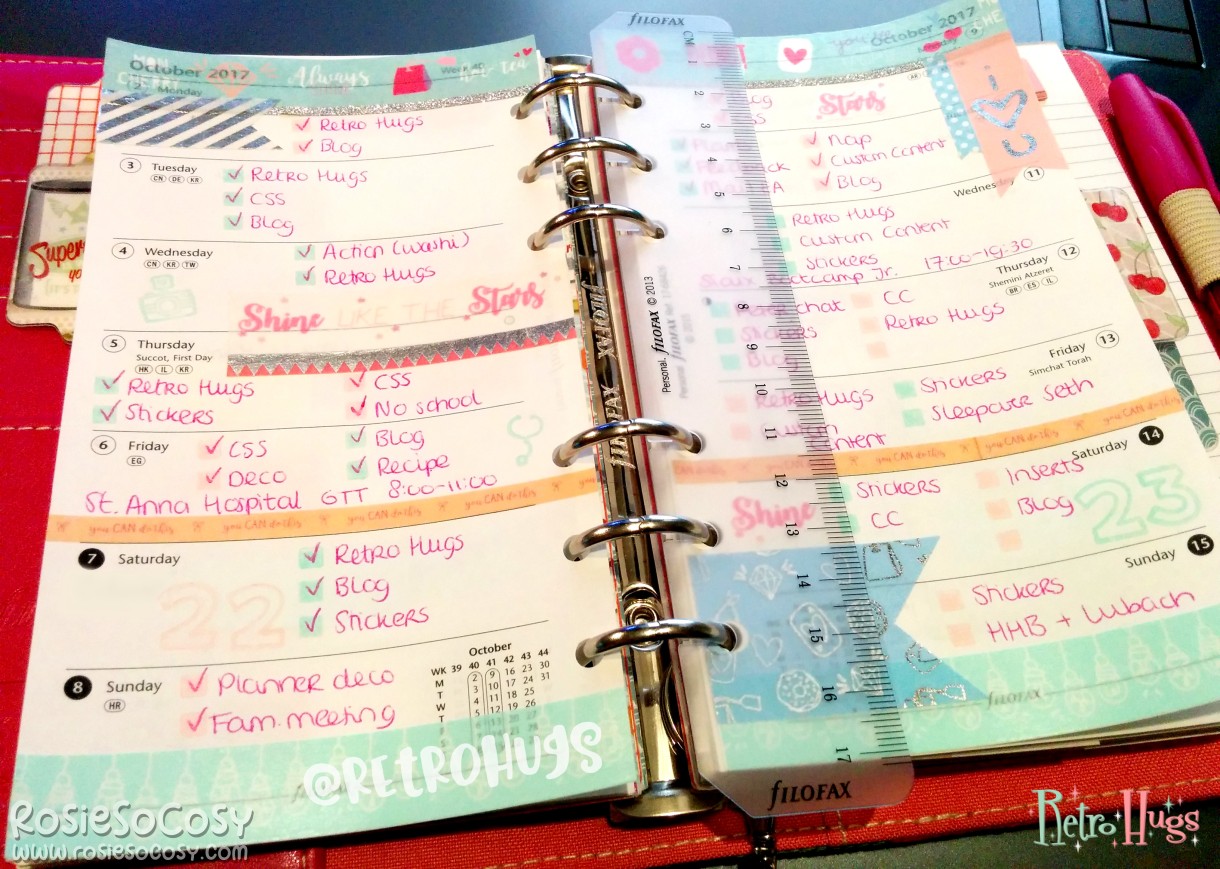 October 2017
Always
Week 40
2 Monday
Retro Hugs
Blog
3 Tuesday
CN DE KR
Retro Hugs
CSS
Blog
4 Wednesday
CN KR TW
Action (washi)
Retro Hugs
Shine LIKE THE Stars
5 Thursday
Succot, First Day
HK IL KR
Retro Hugs
CSS
Stickers
No school
6 Friday
EG
CSS
Blog
Deco
Recipe
St. Anna Hospital GTT 8:00-11:00
you CAN do this you CAN do this you CAN do this you CAN do this
7 Saturday
Retro Hugs
Blog
Stickers
22
8 Sunday
HR
Planner deco
Fam. meeting
October
WK 39 40 41 42 43 44
M 2 9 16 23 30
T 3 10 17 24 31
W 4 11 18 25
T 5 12 19 26
Super
FILOFAX
CM
1
2
3
4
5
6
7
8
9
10
11
12
13
14
15
16
17
Personal. FILOFAX © 2013
FILOFAX
FILOFAX
FILOFAX
October 2017
9
Stars
Nap
Custom Content
Blog
Wednesday 11
Retro Hugs
Custom Content
Stickers
Bootcamp Jr. 17:00-19:30
Thursday 12
Shemini Atzeret
BR ES IL
chat
CC
Stickers
Retro Hugs
Blog
Friday 13
Simchat Torah
Retro Hugs
Stickers
Custom
Content
Sleepover Seth
you CAN do this you CAN do this
Saturday 14
Stickers
Inserts
CC
Blog
Shine
23
Sunday 15
Stickers
HHB + Lubach
FILOFAX
@RETROHUGS
RosieSoCosy
www.rosiesocosy.com
Retro Hugs